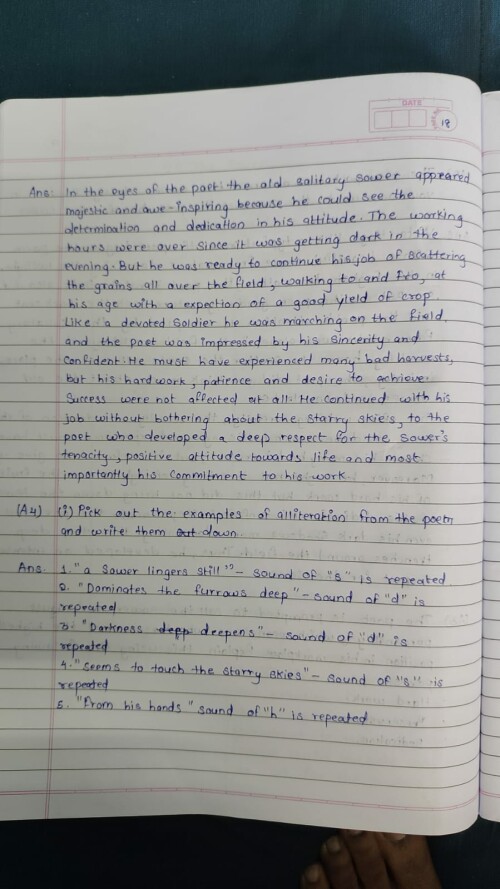 DATE
18
Ans: In the eyes of the poet the old solitary sower appeared
majestic and awe-inspiring because he could see the
determination and dedication in his attitude. The working
hours were over since it was getting dark in the
evening. But he was ready to continue his job of scattering
the grains all over the field, walking to and fro, at
his age with a expection of a good yield of crop.
Like a devoted soldier he was marching on the field,
and the poet was impressed by his sincerity and
confident. He must have experienced many bad harvests,
but his hardwork, patience and desire to achieve.
Success were not affected at all. He continued with his
job without bothering about the starry skies, to the
poet who developed a deep respect for the sower's
tenacity, positive attitude towards life and most
importantly his commitment to his work.
(A4) (i) Pick out the examples of alliteration from the poem
and write them out down.
Ans. 1. "a sower lingers still" - sound of "s" is repeated.
2. "Dominates the furrows deep" - sound of "d" is
repeated
3. "Darkness depp deepens" - sound of "d" is
repeated
4. "seems to touch the starry skies" - sound of "s" is
repeated
5. "From his hands" sound of "h" is repeated